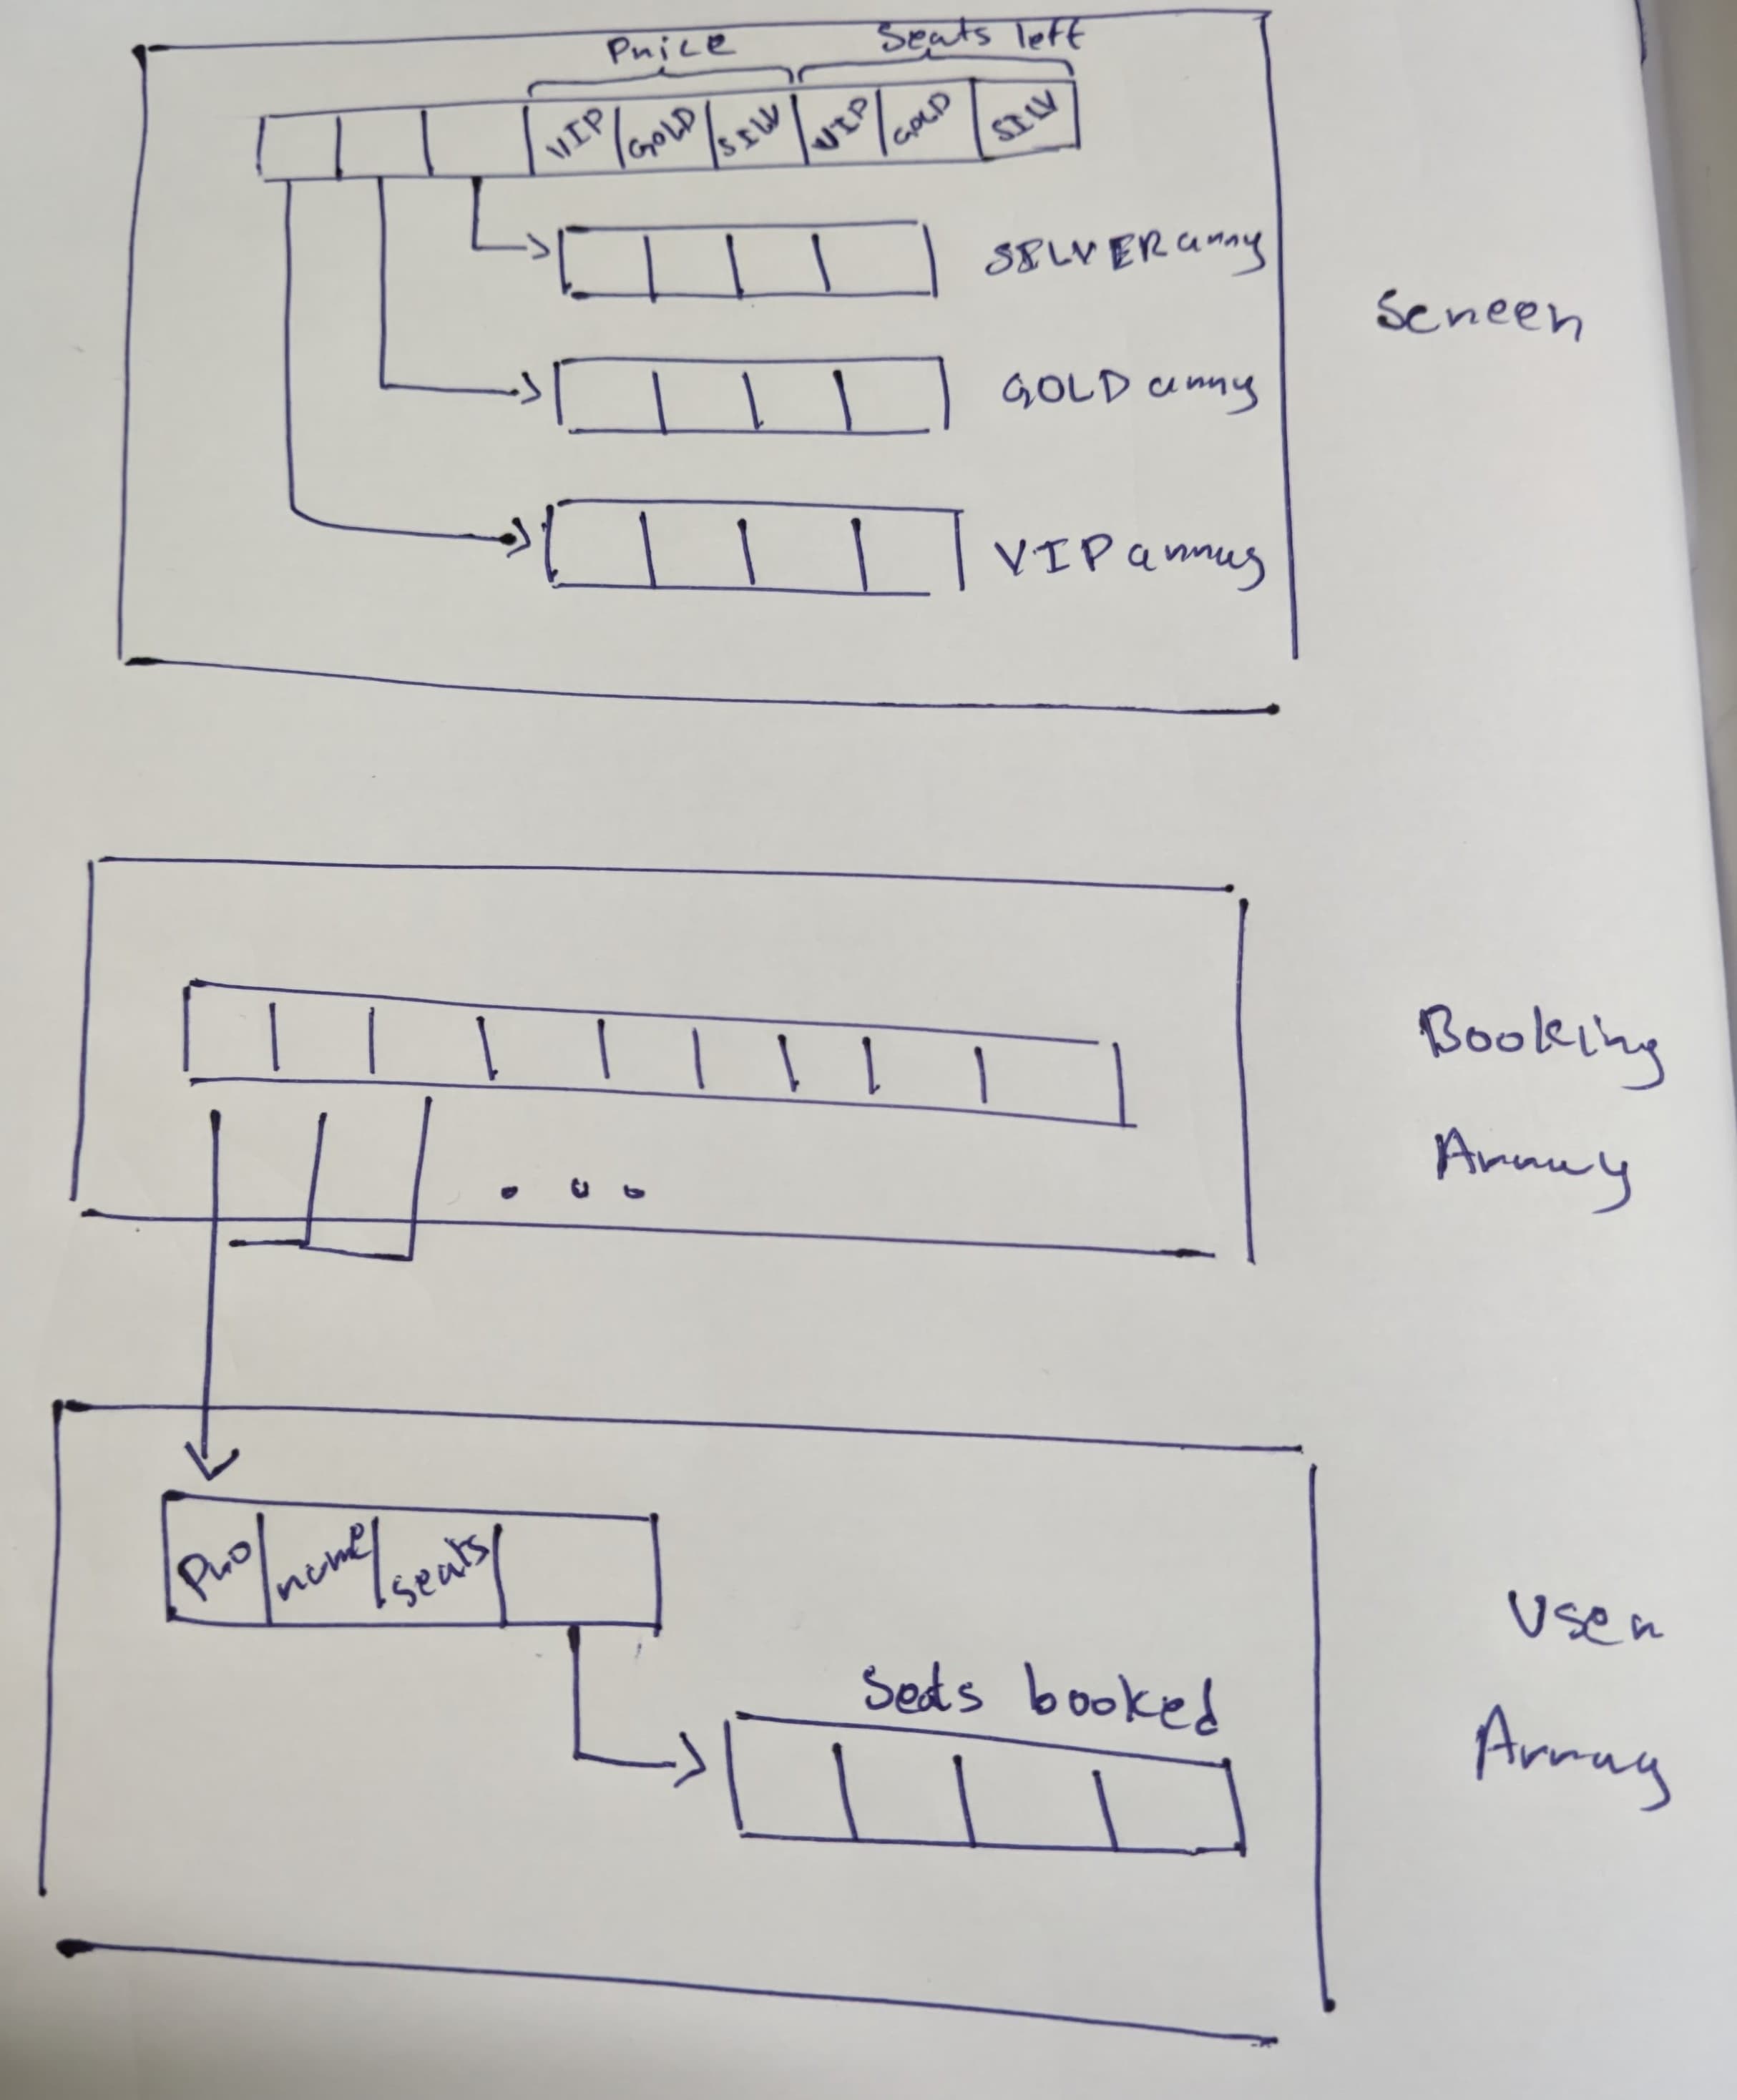 Price Seats left
VIP GOLD SILV VIP GOLD SILV
SILVER array
Screen
GOLD array
VIP array
Booking
Array
Pno name seats
User
Seats booked
Array